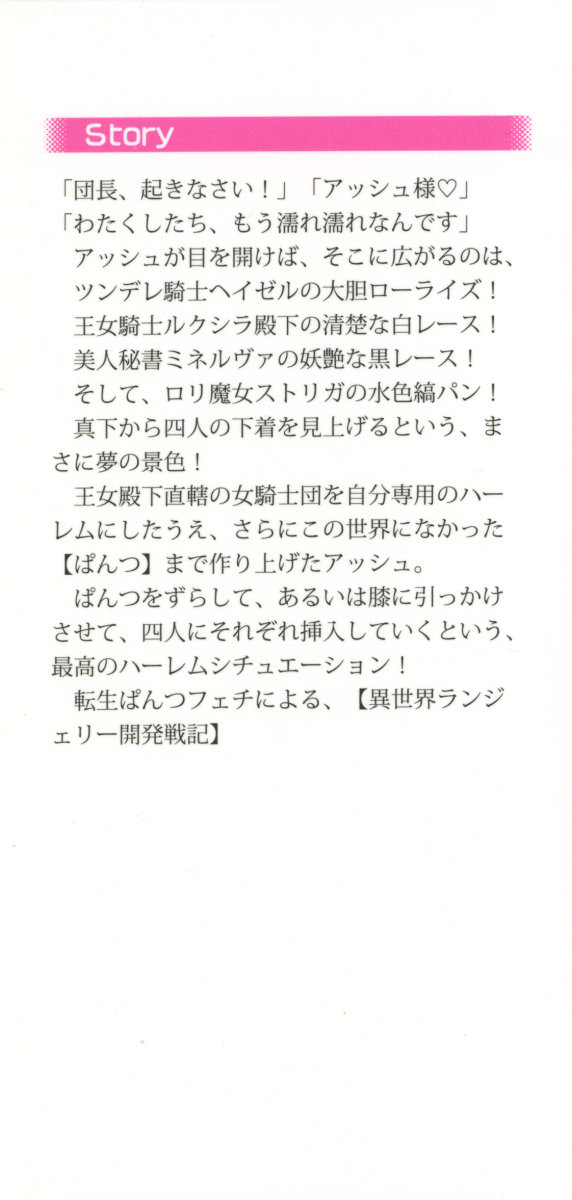 Story
「団長、起きなさい！」「アッシュ様♡」
「わたくしたち、もう濡れ濡れなんです」
　アッシュが目を開けば、そこに広がるのは、
　ツンデレ騎士ヘイゼルの大胆ローライズ！
　王女騎士ルクシラ殿下の清楚な白レース！
　美人秘書ミネルヴァの妖艶な黒レース！
　そして、ロリ魔女ストリガの水色縞パン！
　真下から四人の下着を見上げるという、ま
さに夢の景色！
　王女殿下直轄の女騎士団を自分専用のハー
レムにしたうえ、さらにこの世界になかった
【ぱんつ】まで作り上げたアッシュ。
　ぱんつをずらして、あるいは膝に引っかけ
させて、四人にそれぞれ挿入していくという、
最高のハーレムシチュエーション！
　転生ぱんつフェチによる、【異世界ランジ
ェリー開発戦記】